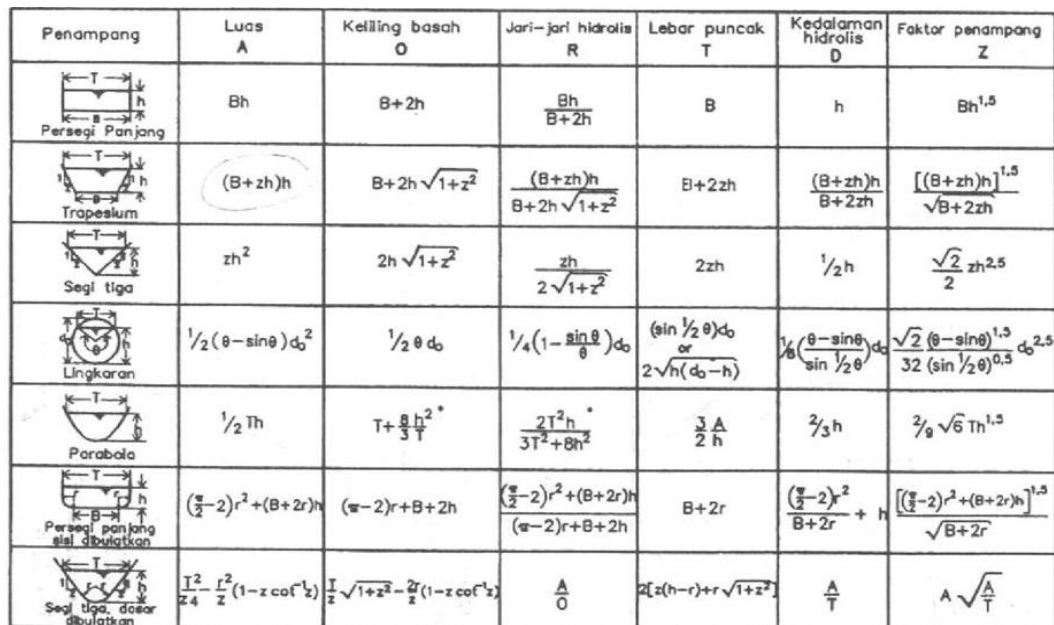 Penampang Luas A Keliling basah O Jari-jari hidrolis R Lebar puncak T Kedalaman hidrolis D Faktor penampang Z
T h B Persegi Panjang Bh B+2h Bh/(B+2h) B h Bh^1,5
T 1 z h B Trapesium (B+zh)h B+2h√(1+z²) (B+zh)h/(B+2h√(1+z²)) B+2zh (B+zh)h/(B+2zh) [(B+zh)h]^1,5/√(B+2zh)
T 1 z h Segi tiga zh² 2h√(1+z²) zh/(2√(1+z²)) 2zh 1/2 h √2/2 zh^2,5
T d₀ θ h Lingkaran 1/2(θ-sinθ)d₀² 1/2 θ d₀ 1/4(1-sinθ/θ)d₀ (sin 1/2 θ)d₀ or 2√(h(d₀-h)) 1/8((θ-sinθ)/(sin 1/2θ))d₀ √2/32 (θ-sinθ)^1,5/(sin 1/2θ)^0,5 d₀^2,5
T Parabola 1/2 Th T+8/3 h²/T * 2T²h/(3T²+8h²) * 3/2 A/h 2/3 h 2/9 √6 Th^1,5
T r h B Persegi panjang sisi dibulatkan (π/2-2)r²+(B+2r)h (π-2)r+B+2h ((π/2-2)r²+(B+2r)h)/((π-2)r+B+2h) B+2r (π/2-2)r²/(B+2r) + h [(π/2-2)r²+(B+2r)h]^1,5/√(B+2r)
T 1 z r r h Segi tiga, dasar dibulatkan T²/z4 - r²/z(1-z cot⁻¹z) T/z √(1+z²) - 2r/z(1-z cot⁻¹z) A/O 2[z(h-r)+r√(1+z²)] A/T A√(A/T)